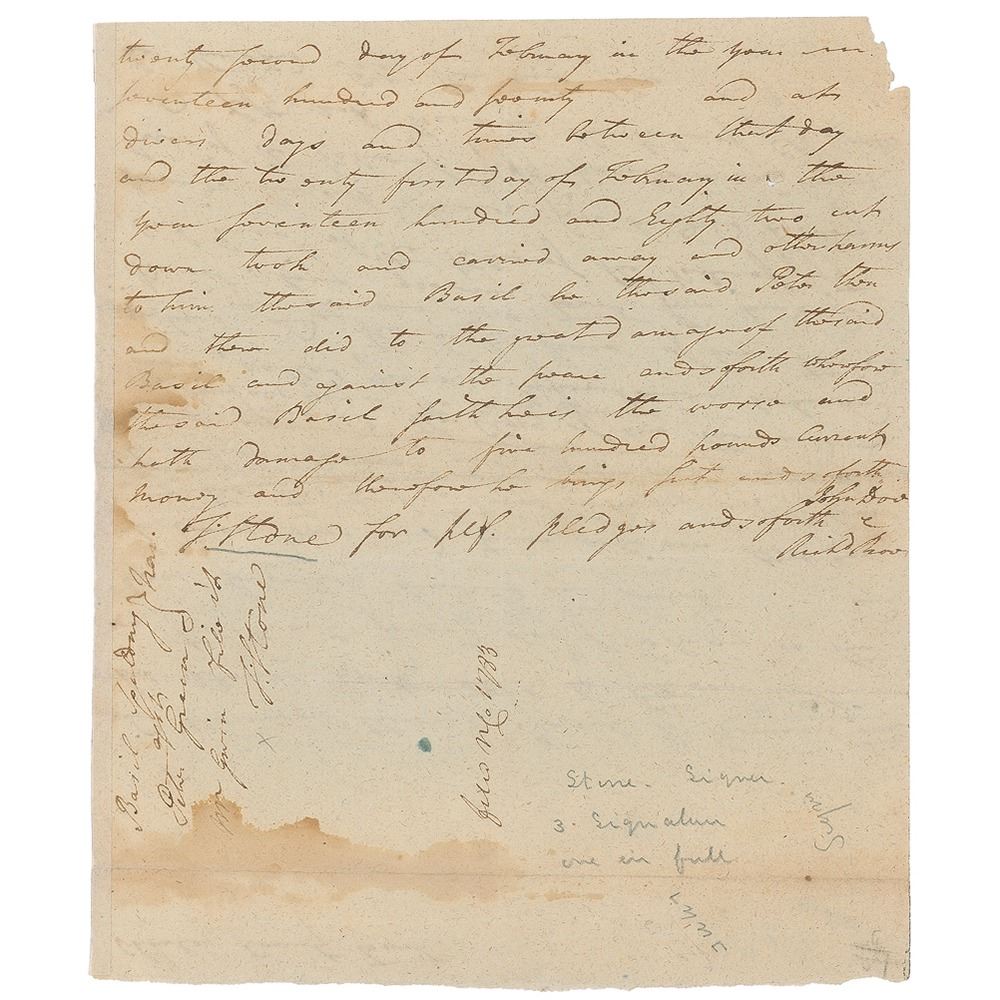 twenty second day of February in the year
seventeen hundred and seventy and at
divers days and times between that day
and the twenty first day of February in the
year seventeen hundred and Eighty two cut
down took and carried away and other harms
to him the said Basil he the said Peter then
and there did to the great damage of the said
Basil and against the peace and so forth wherefore
the said Basil saith he is the worse and
hath damage to five hundred pounds Current
money and therefore he brings suit and so forth
John Doe
T: Stone for plf. pledges and so forth &
Richd Roe
Basil Spalding
agst
Peter Green
Mr Gwin file it
T: Stone
filed 1783
Stone. Signer.
3. Signature
one in full